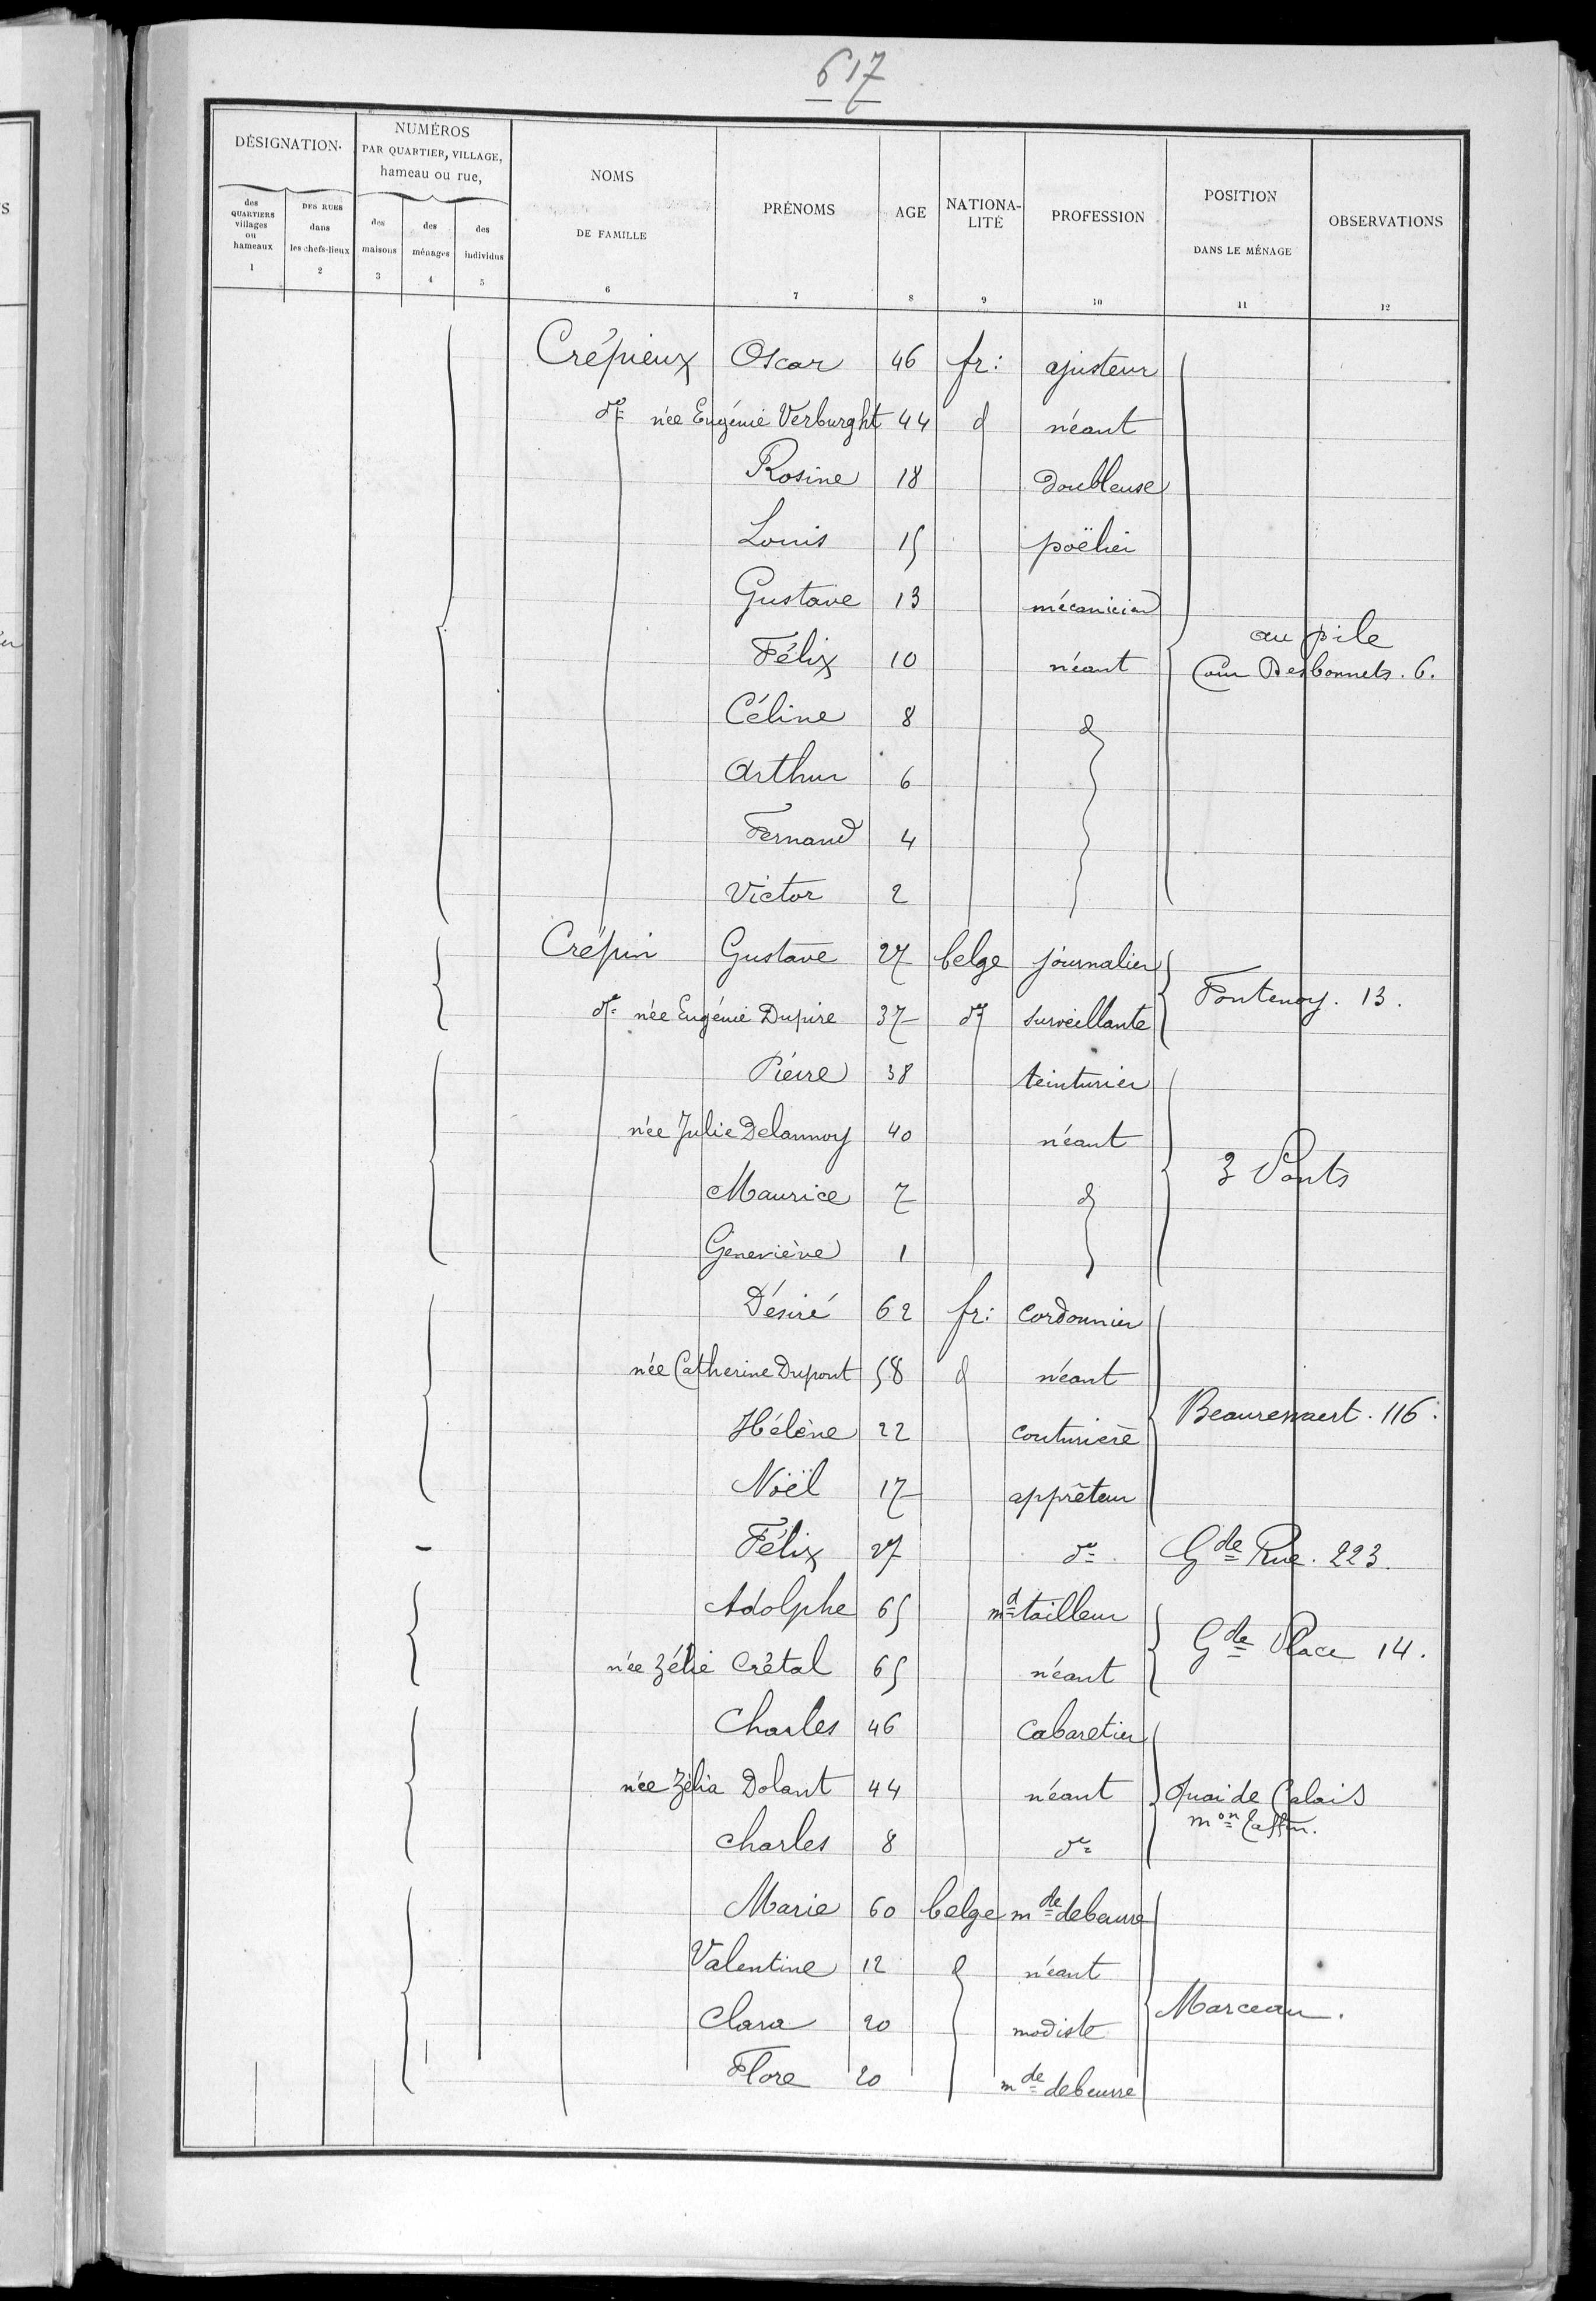 617
DÉSIGNATION
NUMÉROS
PAR QUARTIER, VILLAGE,
hameau ou rue,
des QUARTIERS villages ou hameaux
DES RUES dans les chefs-lieux
des maisons
des ménages
des individus
NOMS DE FAMILLE
PRÉNOMS
AGE
NATIONA-LITÉ
PROFESSION
POSITION DANS LE MÉNAGE
OBSERVATIONS
1 2 3 4 5 6 7 8 9 10 11 12
Crépieux Oscar 46 fr: ajusteur
de née Eugénie Verburght 44 d néant
Rosine 18 doubleuse
Louis 15 poëlier
Gustave 13 mécanicien
au pile
Félix 10 néant Cour Desbonnets. 6.
Céline 8 d
Arthur 6
Fernand 4
Victor 2
Crépin Gustave 27 belge journalier
Fontenoy. 13.
de née Eugénie Dupire 37 de surveillante
Piérre 38 teinturier
née Julie Delannoy 40 néant
3 Ponts
Maurice 7 d
Géneviève 1
Désiré 62 fr: cordonnier
née Catherine Dupont 58 d néant
Beaurewaert. 116.
Hélène 22 couturière
Noël 17 apprêteur
Félix 27 de Gde Rue. 223.
Adolphe 65 md tailleur
Gde Place 14.
née Zélie Crétal 65 néant
Charles 46 Cabaretier
née Zélia Dolant 44 néant Quai de Calais
mon
Charles 8 de
Marie 60 belge mde debeurre
Valentine 12 d néant
Marceau.
Clara 20 modiste
Flore 20 mde debeurre